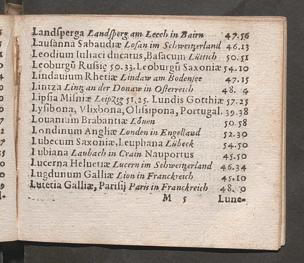 Landsperga Landsperg am Leech in Bairn 47.56
Lausanna Sabaudiæ Losan im Schweitzerland 46.13
Leodium Iuliaci ducatus, Basacum Lüttich 50.51
Leoburgũ Russię 50.33. Leoburgũ Saxoniæ 54.10
Lindauium Rhetiæ Lindaw am Bodensee 47.15
Lintza Lintz an der Donaw in Osterreich 48.
Lipsia Misniæ Leipzig 51.25. Lundis Gotthiæ 57.25
Lysibona, Vlixbona, Olisipona, Portugal. 39.38
Louanium Brabantiæ Löuen 50.58
Londinum Angliæ Londen in Engelland 52.30
Lubecum Saxoniæ, Leuphana Lübeck 54.50
Lubiana Laubach in Crain Nauportus 45.50
Lucerna Heluetiæ Lucern im Schweitzerland 46.34
Lugdunum Galliæ Lion in Franckreich 45.10
Lutetia Galliæ, Parisij Paris in Franckreich 48.
M 5 Lune-